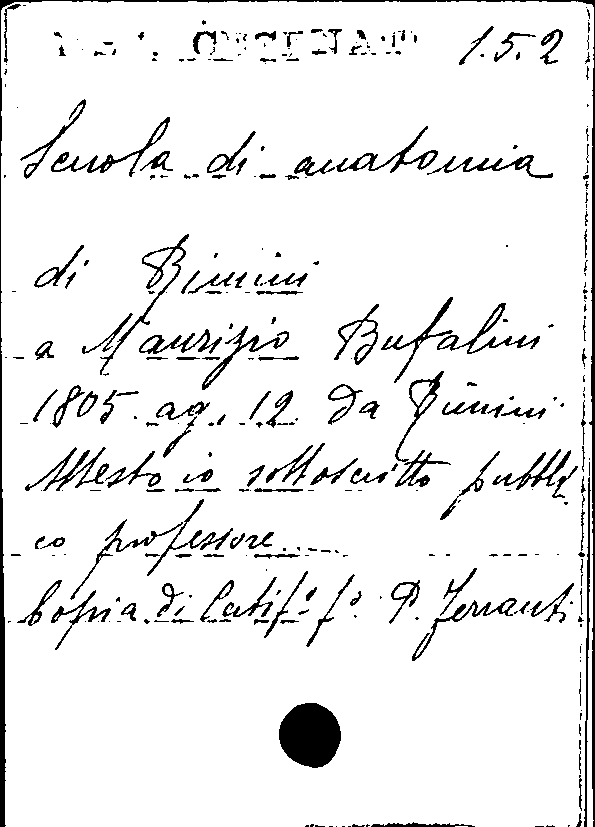 1.5.2
Scuola di anatomia
di Rimini
a Maurizio Bufalini
1805. ag. 12 Da Rimini
Attesto io sottoscritto pubbli
co professore
Copia di Catif.º fº. P. Ferranti